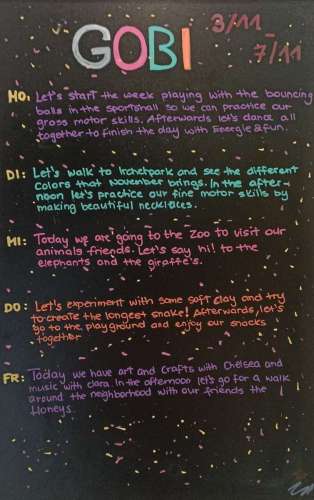 GOBI
3/11 -
7/11
MO: Let's start the week playing with the bouncing
balls in the sportshall so we can practice our
gross motor skills. Afterwards let's dance all
together to finish the day with Energie & fun.
DI: Let's walk to Irchelpark and see the different
colors that November brings. In the after-
noon let's practice our fine motor skills by
making beautiful necklaces.
MI: Today we are going to the Zoo to visit our
animals friends. Let's say hi! to the
elephants and the giraffe's.
DO: Let's experiment with some soft clay and try
to create the longest snake! Afterwards, let's
go to the playground and enjoy our snacks
together
FR: Today we have art and crafts with Chelsea and
music with clara. In the afternoon let's go for a walk
around the neighborhood with our friends the
Honeys